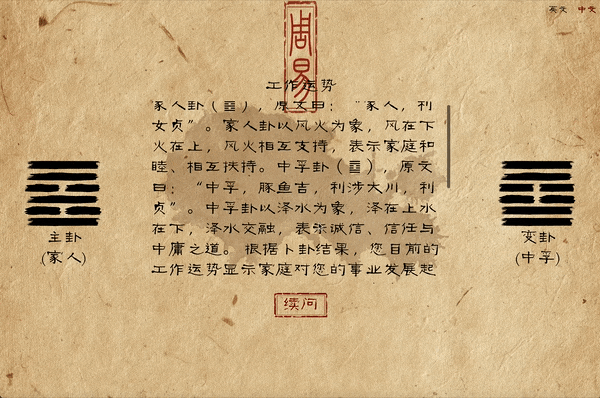 英文 中文
周易
工作运势
家人卦（䷤），原文曰：“家人，利
女贞”。家人卦以风火为象，风在下
火在上，风火相互支持，表示家庭和
睦、相互扶持。中孚卦（䷼），原文
曰：“中孚，豚鱼吉，利涉大川，利
贞”。中孚卦以泽水为象，泽在上水
在下，泽水交融，表示诚信、信任与
中庸之道。根据卜卦结果，您目前的
工作运势显示家庭对您的事业发展起
主卦
(家人)
变卦
(中孚)
续问